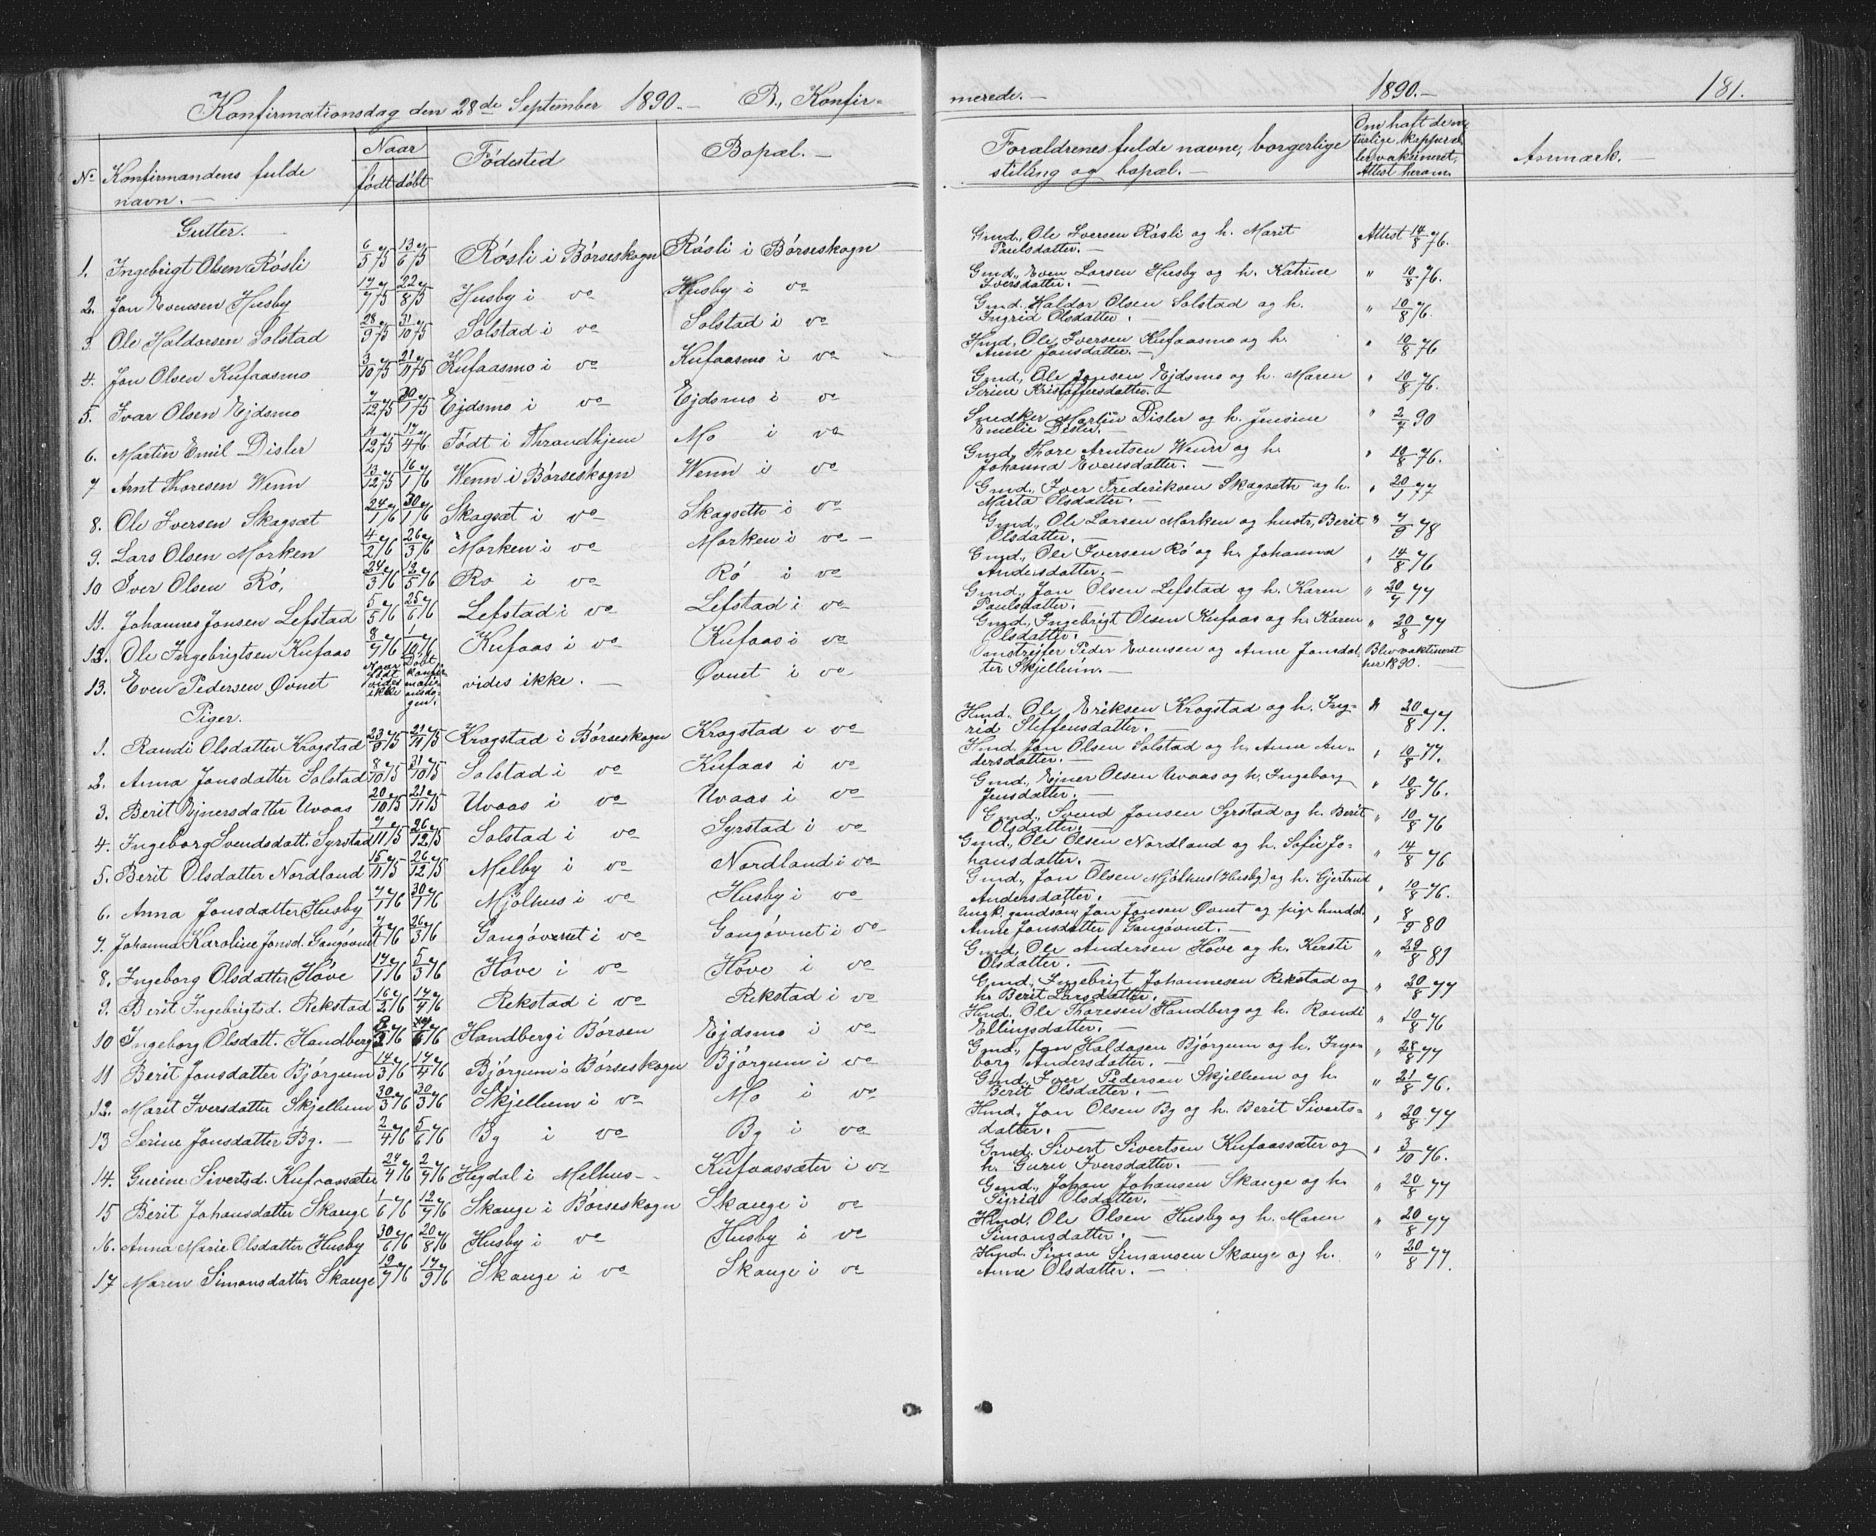 Konfirmationsdag den 28de September 1890.- B, Konfir-
merede.- 1890.- 181.
No Konfirmandens fulde navn.- Naar født døbt Fødested Bopæl.- Forældrenes fulde navne, borgerlige stilling og bopæl.- Om haft de na-turlige kopper el-ler vaktineret, Attest herom. Anmærk.-
Gutter.
1. Ingebrigt Olsen Røsli 6/5 75 13/6 75 Røsli i Børseskogn Røsli i Børseskogn Gmd., Ole Iversen Røsli og h. Marit Paulsdatter.- Attest 14/8 76.
2. Jon Evensen Husby 17/7 75 22/8 75 Husby i do Husby i do Gmd., Even Larsen Husby og h. Katrine Iversdatter.- " 10/8 76.
3. Ole Haldorsen Solstad 28/9 75 31/10 75 Solstad i do Solstad i do Gmd. Haldor Olsen Solstad og h. Ingrid Olsdatter.- " 10/8 76.
4. Jon Olsen Kufaasmo 3/10 75 21/11 75 Kufaasmo i do Kufaasmo i do Hmd., Ole Iversen Kufaasmo og h. Anne Jonsdatter.- " 10/8 76
5. Ivar Olsen Ejdsmo 7/12 75 30/1 75 Ejdsmo i do Ejdsmo i do Gmd., Ole Jonsen Ejdsmo og h. Maren Serine Kristoffersdatter.- " 10/8 76.
6. Martin Emil Disler 12 75 17/4 76 Født i Thrandhjem Mo i do Snedker Martin Disler og h. Jensine Emelie Disler.- " 2/7 90
7 Arnt Thoresen Wenn 13/12 75 16/1 76 Wenn i Børseskogn Wenn i do Gmd. Thore Arntsen Wenn og h. Johanna Evensdatter.- " 10/8 76.
8. Ole Iversen Skagsæt 24/1 76 30/1 76 Skagsæt i do Skagseth i do Gmd., Iver Frederiksen Skagseth og h. Marta Olsdatter.- " 20/1 77
9. Lars Olsen Morken 4/2 76 26/3 76 Morken i do Morken i do - Gmd., Ole Larsen Morken og hustr, Berit Olsdatter.- " 7/9 78
10 Iver Olsen Rø, 24/3 76 12/5 76 Ro i do Rø i do Gmd., Ole Iversen Rø og h. Johanna Andersdatter.- " 14/8 76
11. Johannes Jonsen Lefstad 5/5 76 25/6 76 Lefstad i do Lefstad i do Gmd., Jon Olsen Lefstad og h. Karen Paulsdatter. " 20/7 77
12. Ole Ingebrigtsen Kufaas 8/7 76 1/10 76 Kufaas i do Kufaas i do Gmd., Ingebrigt Olsen Kufaas og h. Karen Olsdatter.- " 20/8 77
13. Even Pedersen Øvnet Naar født vides ikke Døbt konfir-mati-onsda-gen. vides ikke.- Øvnet i do Peder Evensen og Anne Jonsdat-ter Skjellum.- Blev vaktineret her 1890.
Piger.
1. Randi Olsdatter Krogstad 23/9 75 21/11 75 Krogstad i Børseskogn Krogstad i do Hmd., Ole Eriksen Krogstad og h. Ing-rid Steffensdatter.- " 20/8 77.
2. Anna Jonsdatter Solstad 8/10 75 31/10 75 Solstad i do Kufaas i do Hmd. Jon Olsen Solstad og h. Anne An-dersdatter.- " 10/8 77.
3. Berit Ejnersdatter Uvaas 20/10 75 21/11 75 Uvaas i do Uvaas i do Gmd., Ejner Olsen Uvaas og h. Ingeborg Jensdatter.- " 10/8 76.
4. Ingeborg Svendsdatt. Syrstad 7/11 75 26/12 75 Solstad i do Syrstad i do Gmd., Svend Jonsen Syrstad og h. Berit Olsdatter.- " 10/8 76
5. Berit Olsdatter Nordland 15/11 75 26/12 75 Melby i do Nordland i do Gmd., Ole Olsen Nordland og h. Sofie Jo-hansdatter.- " 14/8 76
6. Anna Jonsdatter Husby 7/1 76 30/1 76 Mjølhus i do Husby i do Gmd., Jon Olsen Mjølhus (Husby) og h. Gjertrud Andersdatter.- " 10/8 76.
7. Johanna Karoline Jonsd. Gangøvnet 76 26/3 76 Gangøvnet i do Gangøvnet i do Ungk. gmdsøn, Jon Jonsen Øvnet og pige Anne Jonsdatter Gangøvnet.- " 8/9 80
8. Ingeborg Olsdatter Høve 17/1 76 5/3 76 Høve i do Høve i do Gmd., Ole Andersen Høve og h. Kersti Olsdatter.- " 29/8 81
9. Berit Ingebrigtsd. Rekstad 16/2 76 17/4 76 Rekstad i do Rekstad i do Gmd., Ingebrigt Johannesen Rekstad og h. Berit Larsdatter.- " 20/8 77
10 Ingeborg Olsdatt. Handberg 76 76 Handberg i Børsen Ejdsmo i do Hmd. Ole Thoresen Handberg og h. Randi Ellingsdatter.- " 10/8 76
11 Berit Jonsdatter Bjørgum 14/3 76 17/4 76 Bjørgum i Børseskogn Bjørgum i do Gmd., Jon Haldosen Bjørgum og h. Inge-borg Andersdatter.- " 28/8 77
12. Marit Iversdatter Skjellum 30/3 76 30/3 76 Skjellum i do Mo i do Gmd. Iver Pedersen Skjellum og h. Berit Olsdatter.- " 21/8 76.
13 Serine Jonsdatter By.- 2/4 76 5/6 76 By i do By i do Hmd., Jon Olsen By og h. Berit Siverts-datter.- " 20/8 77
14. Gurine Sivertsd. Kufaassæter 24/4 76 2/7 76 Hegdal i Melhus- Kufaassæter i do Gmd. Sivert Sivertsen Kufaassæter og h. Guru Iversdatter.- " 3/10 76.
15 Berit Johansdatter Skauge 1/6 76 12/7 76 Skauge i Børseskogn Skauge i do Gmd., Johan Johansen Skauge og h. Sigrid Olsdatter.- " 20/8 77
16. Anna Marie Olsdatter Husby 30/6 76 20/8 76 Husby i do Husby i do Hmd. Ole Olsen Husby og h. Maren Simonsdatter.- " 20/8 77
17 Maren Simonsdatter Skauge 19/7 76 17/9 76 Skauge i do Skauge i do Hmd. Simon Simonsen Skauge og h. Anne Olsdatter.- " 20/8 77.